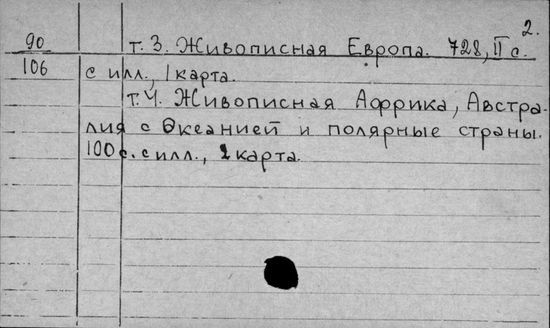 2.
90 т. 3. Живописная Европа. 728, II с.
106 с илл., 1 карта.
т. 4. Живописная Африка, Австра-
лия с Океанией и полярные страны.
100 с. с илл., 2 карта.